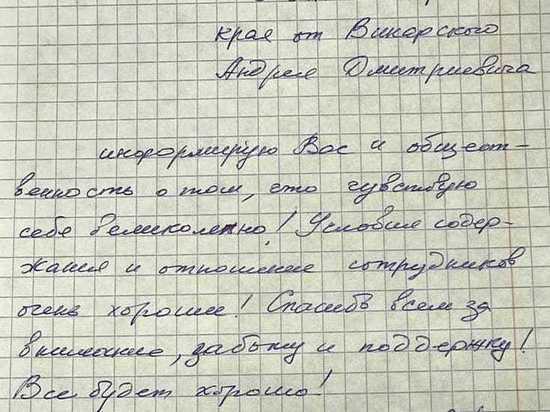 края от Винарского
Андрея Дмитриевича
информирую Вас и общест-
венность о том, что чувствую
себя великолепно! Условия содер-
жания и отношение сотрудников
очень хорошие! Спасибо всем за
внимание, заботу и поддержку!
Все будет хорошо!